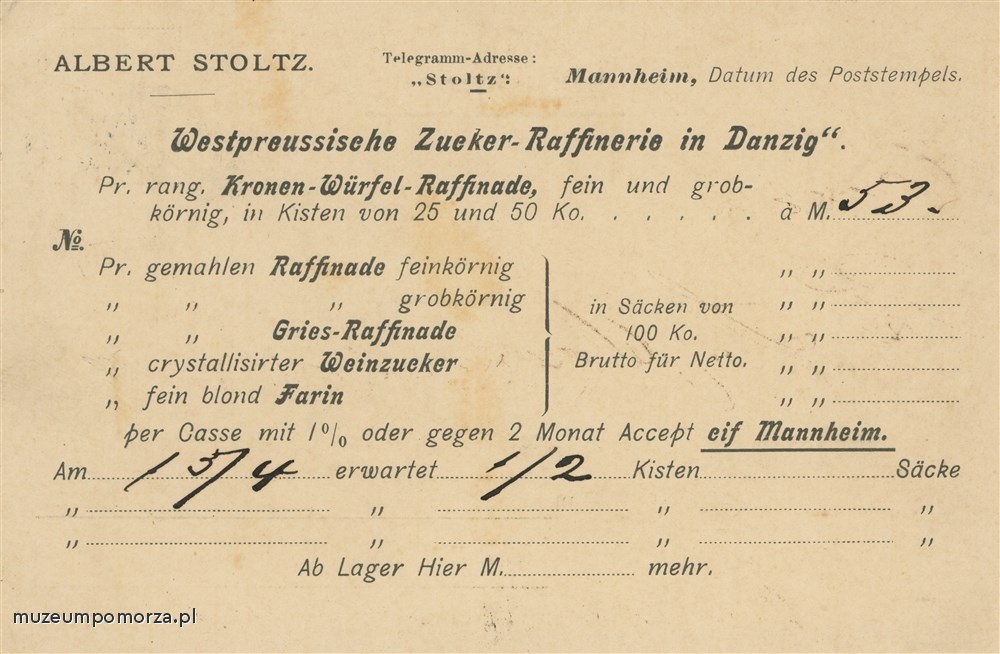 ALBERT STOLTZ.
Telegramm-Adresse:
„Stoltz":
Mannheim, Datum des Poststempels.
Westpreussische Zucker-Raffinerie in Danzig".
Pr. rang. Kronen-Würfel-Raffinade, fein und grob-
körnig, in Kisten von 25 und 50 Ko. . . . . . à M. 53.-
No.
Pr. gemahlen Raffinade feinkörnig „ „
„ „ „ grobkörnig in Säcken von „ „
„ „ Gries-Raffinade 100 Ko. „ „
„ crystallisirter Weinzucker Brutto für Netto. „ „
„ fein blond Farin „ „
per Casse mit 1% oder gegen 2 Monat Accept cif Mannheim.
Am 15/4 erwartet 1/2 Kisten Säcke
„ „ „ „
„ „ „ „
Ab Lager Hier M. mehr.
muzeumpomorza.pl